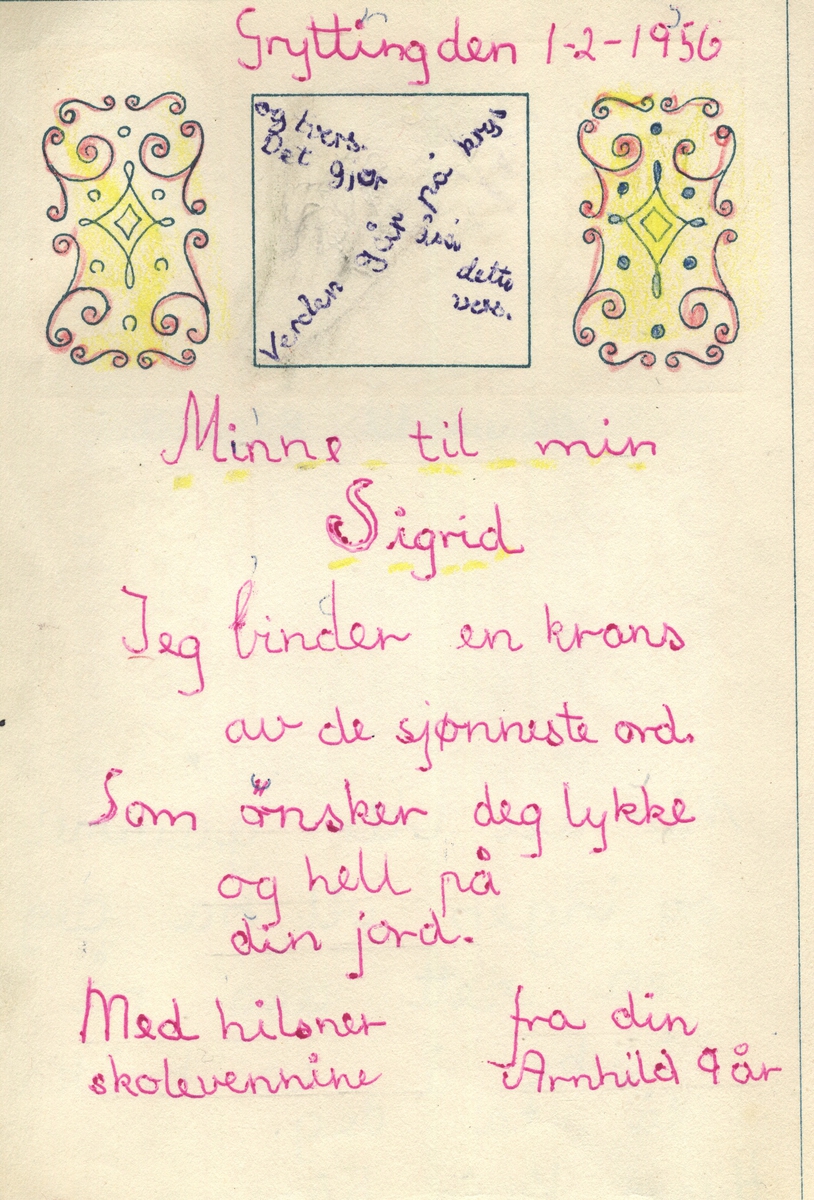 Grytting den 1-2-1956
Verden går på krys
og tvers.
Det gjør
også
dette
vers.
Minne til min
Sigrid
Jeg binder en krans
av de sjønneste ord.
Som önsker deg lykke
og hell på
din jord.
Med hilsner fra din
skolevennine Arnhild 9 år